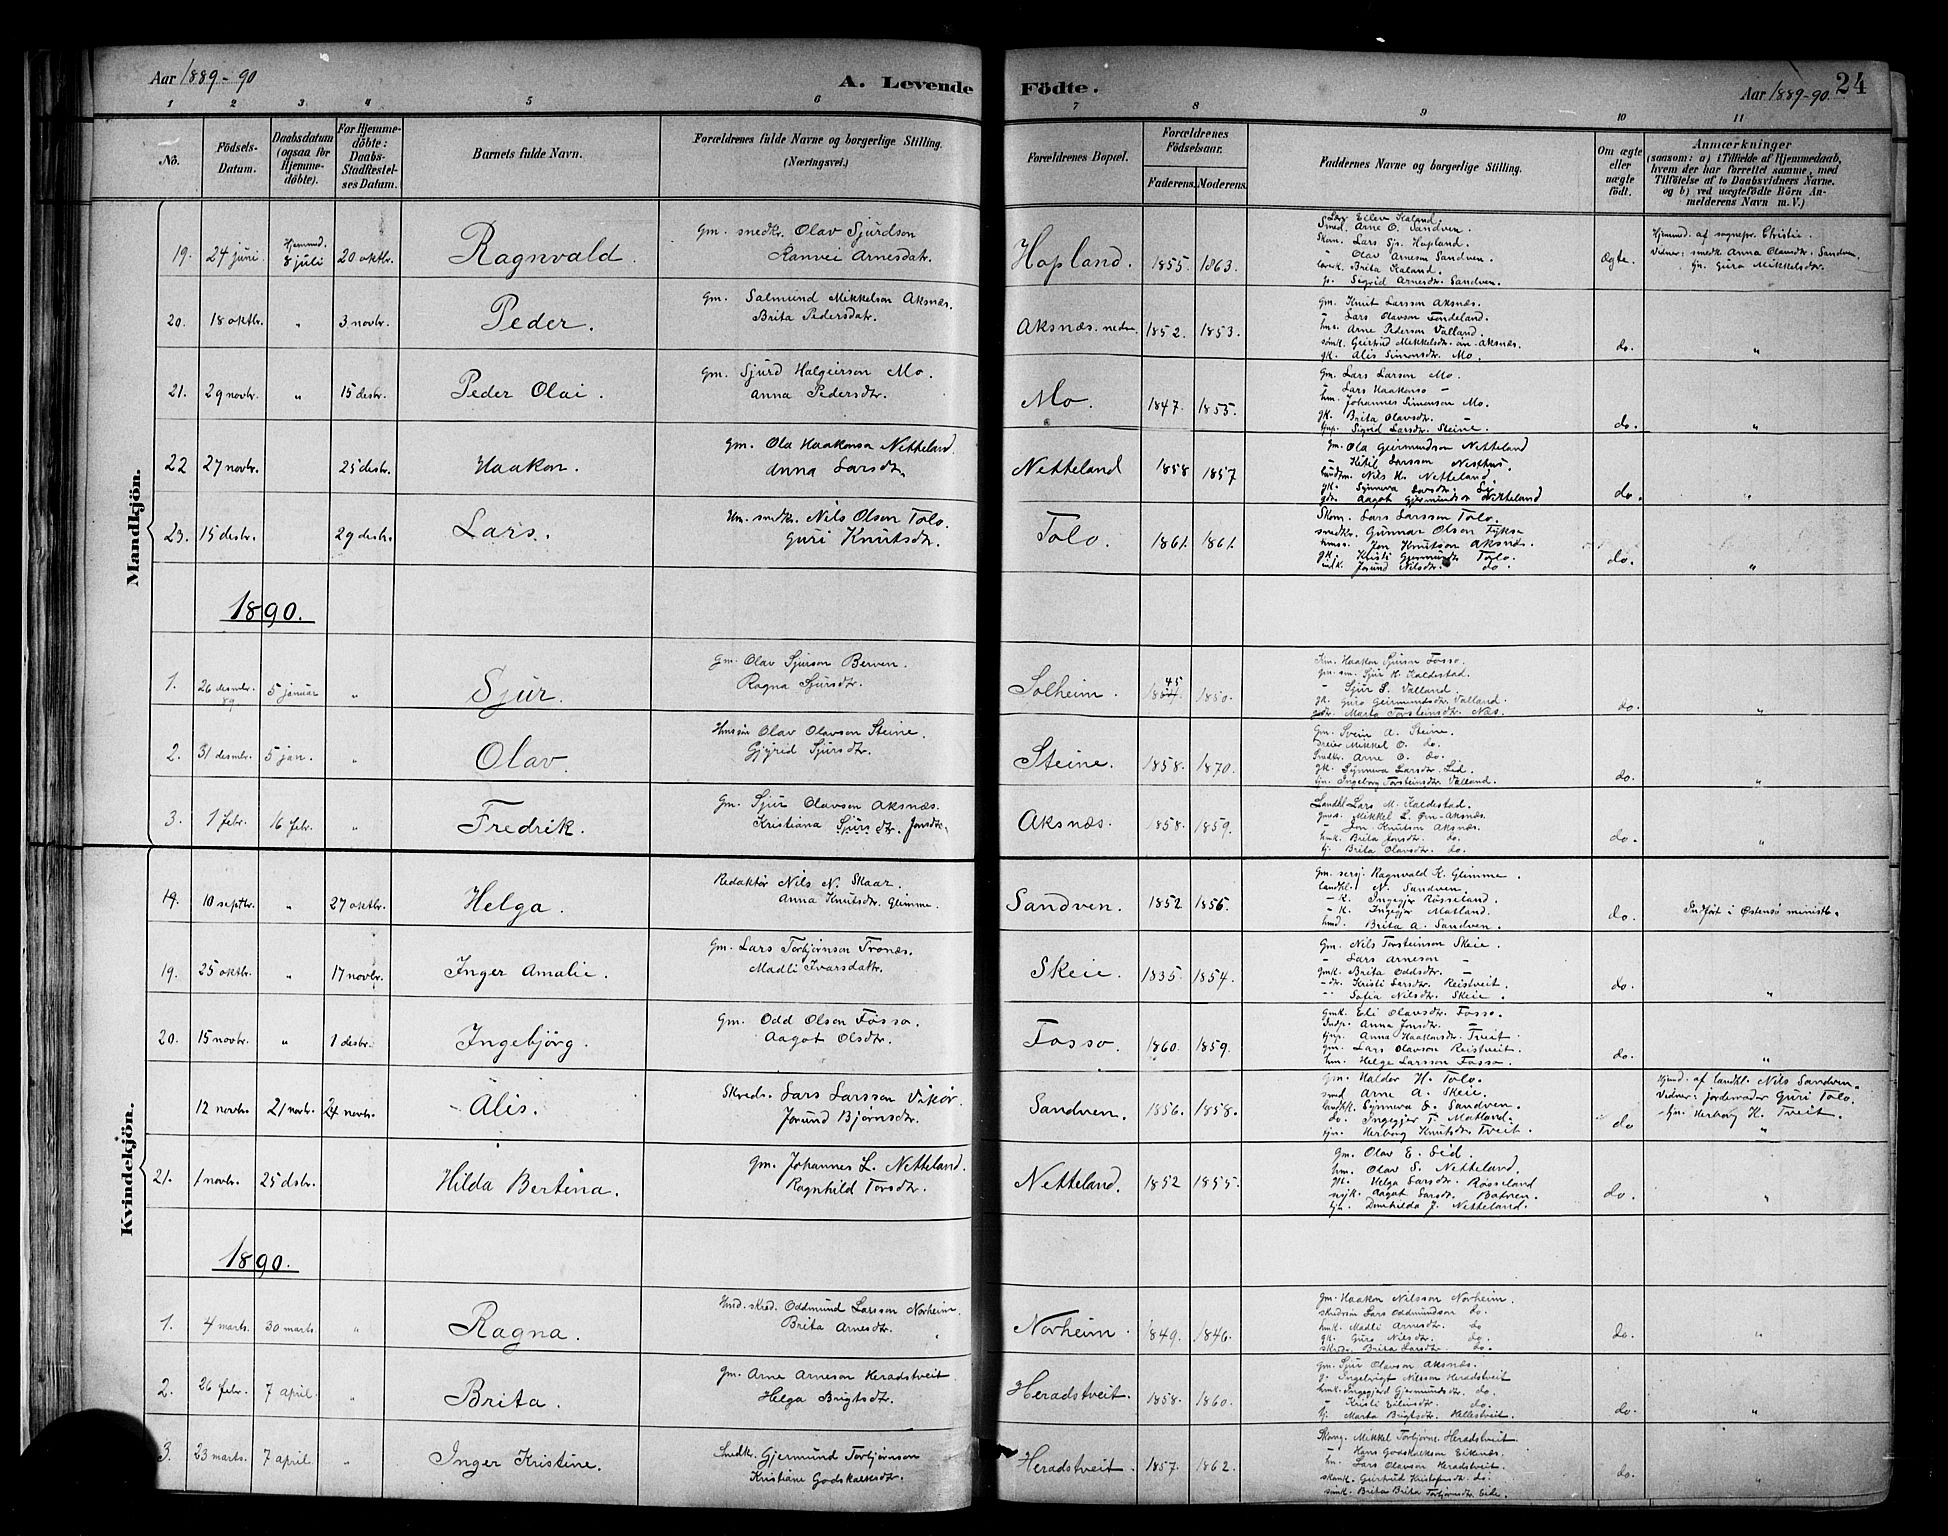 Aar 1889-90
A. Levende Födte.
Aar 1889-90. 24
1 2 3 4 5 6 7 8 9 10 11
Nô. Födsels-Datum. Daabsdatum (ogsaa for Hjemme-döbte). For Hjemme-döbte: Daabs-Stadfæstel-ses Datum. Barnets fulde Navn. Forældrenes fulde Navne og borgerlige Stilling. (Næringsvei.) Forældrenes Bopæl. Forældrenes Födselsaar. Faderens. Moderens. Faddernes Navne og borgerlige Stilling. Om ægte eller uægte födt. Anmærkninger (saasom: a) i Tilfælde af Hjemmedaab, hvem der har forrettet samme, med Tilföielse af to Daabsvidners Navne, og b) ved uægtefödte Börn An-melderens Navn m. V.)
Mandkjön.
19. 24 juni Hjemmd. 8 juli 20 oktbr. Ragnvald. Gm. snedkr. Olav Sjurdson
Ranvei Arnesdatr. Hopland. 1855. 1863. Eilev Kaland.
Smed. Arne O. Sandven.
Skom. Lars Sj. Hopland.
Olav Arneson Sandven.
Brita Kaland.
p. Sigrid Arnesdtr. Sandven. Ægte. Hjemmd. af sognepr. Christie.
Vidner: smedk Anna Olavsdtr. Sandven,
tjn. Guro Mikkelsdtr.
20. 18 oktbr. " 3 novbr. Peder. Gm. Salmund Mikkelson Aksnæs.
Brita Pedersdatr. Aksnæs. nedre. 1852. 1853. Gm. Knut Larsson Aksnæs.
" Lars Olavson
Arne Pederson Valland.
Geirtrud Mikkelsdtr. Aksnæs.
gk. Alis Simonsdtr. Mo. do. "
21. 29 novbr. " 15 desbr. Peder Olai. Gm. Sjurd Halgeirson Mo.
Anna Pedersdtr. Mo. 1847. 1855. Gm. Lars Larson Mo.
– Lars Haakonso –
hm. Johannes Simonson Mo.
gk. Brita Olavsdtr.
Sigrid Larsdtr. Steine. do. "
22 27 novbr. 25 desbr. Haakon. Gm. Ola Haakonsa Netteland.
Anna Larsdtr Netteland 1858 1857 Gm. Ola Geirmundson Netteland
– Kitil Larsson Nesthus.
Nils H. Netteland
gk. Synneva Larsdtr.
Aagot Gjermundsda Netteland do. "
23. 15 desbr. 29 desbr. Lars. Hm. snedkr. Nils Olson Tolo.
Guri Knutsdtr. Tolo. 1861. 1861. Skom. Lars Larsson Tolo.
snedkr. Gunnar Olson Fyksa
Jon Knutson Aksnæs.
gk. Kristi Gjermundsdtr. Tolo.
Jorund Nilsdtr. do. do. "
1890.
1. 26 desmbr. 89 5 januar " Sjur. Gm. Olav Sjurson Berven.
Ragna Sjursdtr. Solheim. 1845 1850. Haakon Sjurson Fosso.
Sjur H. Kaldestad.
– Sjur S. Valland.
gk. Guro Geirmundsdtr. Valland.
Marta Torsteinsdtr. Næs. do. "
2. 31 desmbr. 5 jan. " Olav. Olav Olavson Steine.
Gjyrid Sjursdtr. Steine. 1858. 1870. Gm. Svein A. Steine.
Dreier Mikkel O. do.
Snedkr. Arne O. do.
gk. Synneva Larsdtr. Lid.
tjn. Ingeborg Torsteinsdtr. Valland. do. "
3. 1 febr. 16 febr. " Fredrik. Gm. Sjur Olavson Aksnæs.
Kristiana Sjursdtr. Jonsdtr. Aksnæs. 1858. 1859. Lars M. Kaldestad.
Mikkel L. Øvr-Aksnæs.
– Jon Knutson Aksnæs.
Brita Jonsdtr. do.
tj. Brita Olavsdtr. do. do. "
Kvindekjön.
19. 10 septbr. " 27 oktbr. Helga. Redaktör Nils N. Skaar.
Anna Knutsdtr. Glimme. Sandven. 1852 1856. Gm. sersj. Ragnvald K. Glimme.
landkl. N. Sandven.
– k. Ingegjer Røsseland.
– k. Ingegjer Matland.
Brita A. Sandven. do. Indført i Østensø ministb.
19. 25 oktbr. " 17 novbr. Inger Amalie. Gm. Lars Torbjörnson Tronæs.
Madli Ivarsdatr. Skeie. 1835. 1854. Gm. Nils Torsteinson Skeie.
– Lars Arneson –
gmk. Brita Oddsdtr. –
– dtr. Kristi Larsdtr. Reistveit.
Sofia Nilsdtr. Skeie. do. "
20. 15 novbr. " 1 desbr. Ingebjörg. Gm. Odd Olson Fosso.
Aagot Olsdtr. Fosso. 1860. 1859. Gmk. Eli Olavsdtr. Fosso.
Anna Jonsdtr. –
Anna Haakonsdtr. Tveit.
Gm. Lars Olavson Reistveit.
hm. Helge Larsson Fosso. do. "
12 novbr. 21 novbr. 24 novbr. Alis. Skreds. Lars Larsson Vikör.
Jorund Björnsdtr. Sandven. 1856. 1858. Gm. Haldor H. Tolo.
smd Arne A. Skeie.
landkk. Synneva E. Sandven.
do. Ingegjer T. Matland.
tjn. Herborg Knutsdtr. Tveit. do Hjmd. af landkl. Nils Sandven.
Vidner: jordemoder Guri Tolo.
– tjn. Herborg K. Tveit. "
21. 1 novbr. 25 dsbr. Hilda Bertina. Gm. Johannes L. Netteland.
Ragnhild Torsdtr. Netteland. 1852 1855. Gm. Olav E. Lid.
hm. Olav S. Netteland.
gk. Helga Larsdtr. Røsseland
Aagot Larsdtr.
tjn. J. Netteland. do. "
1890.
1. 4 marts. 30 marts. " Ragna. skred. Oddmund Larsson Norheim.
Brita Arnesdtr. Norheim. 1849. 1846. Gm. Haakon Nilsson Norheim.
Lars Oddmundson do.
hmk. Madli Arnesdtr. do
gk. Guro Nilsdtr. do.
Brita Larsdtr. do. do. "
2. 26 febr. 7 april. " Brita. Gm. Arne Arneson Heradstveit
Helga Brigtsdtr. Heradstveit. 1858. 1860. Gm. Sjur Olavson Aksnæs.
Ingebrigt Nilsson Heradstveit
Ingegjerd Gjermundsdtr. do.
Kristi Eilevsdtr. do.
tj. Marta Brigtsdtr. do. "
3. 23 marts. 7 april. " Inger Kristine. Snedk. Gjermund Torbjörnson
Kristiane Godskalksdtr. Heradstveit. 1857. 1862. Mikkel Torbjörns. Heradstveit.
– Hans Godskalkson Eiknæs.
hm. Lars Olavson Heradstveit.
Geirtrud Kristofersdtr. do.
Brita Torbjörnsdtr. Eide. do. "